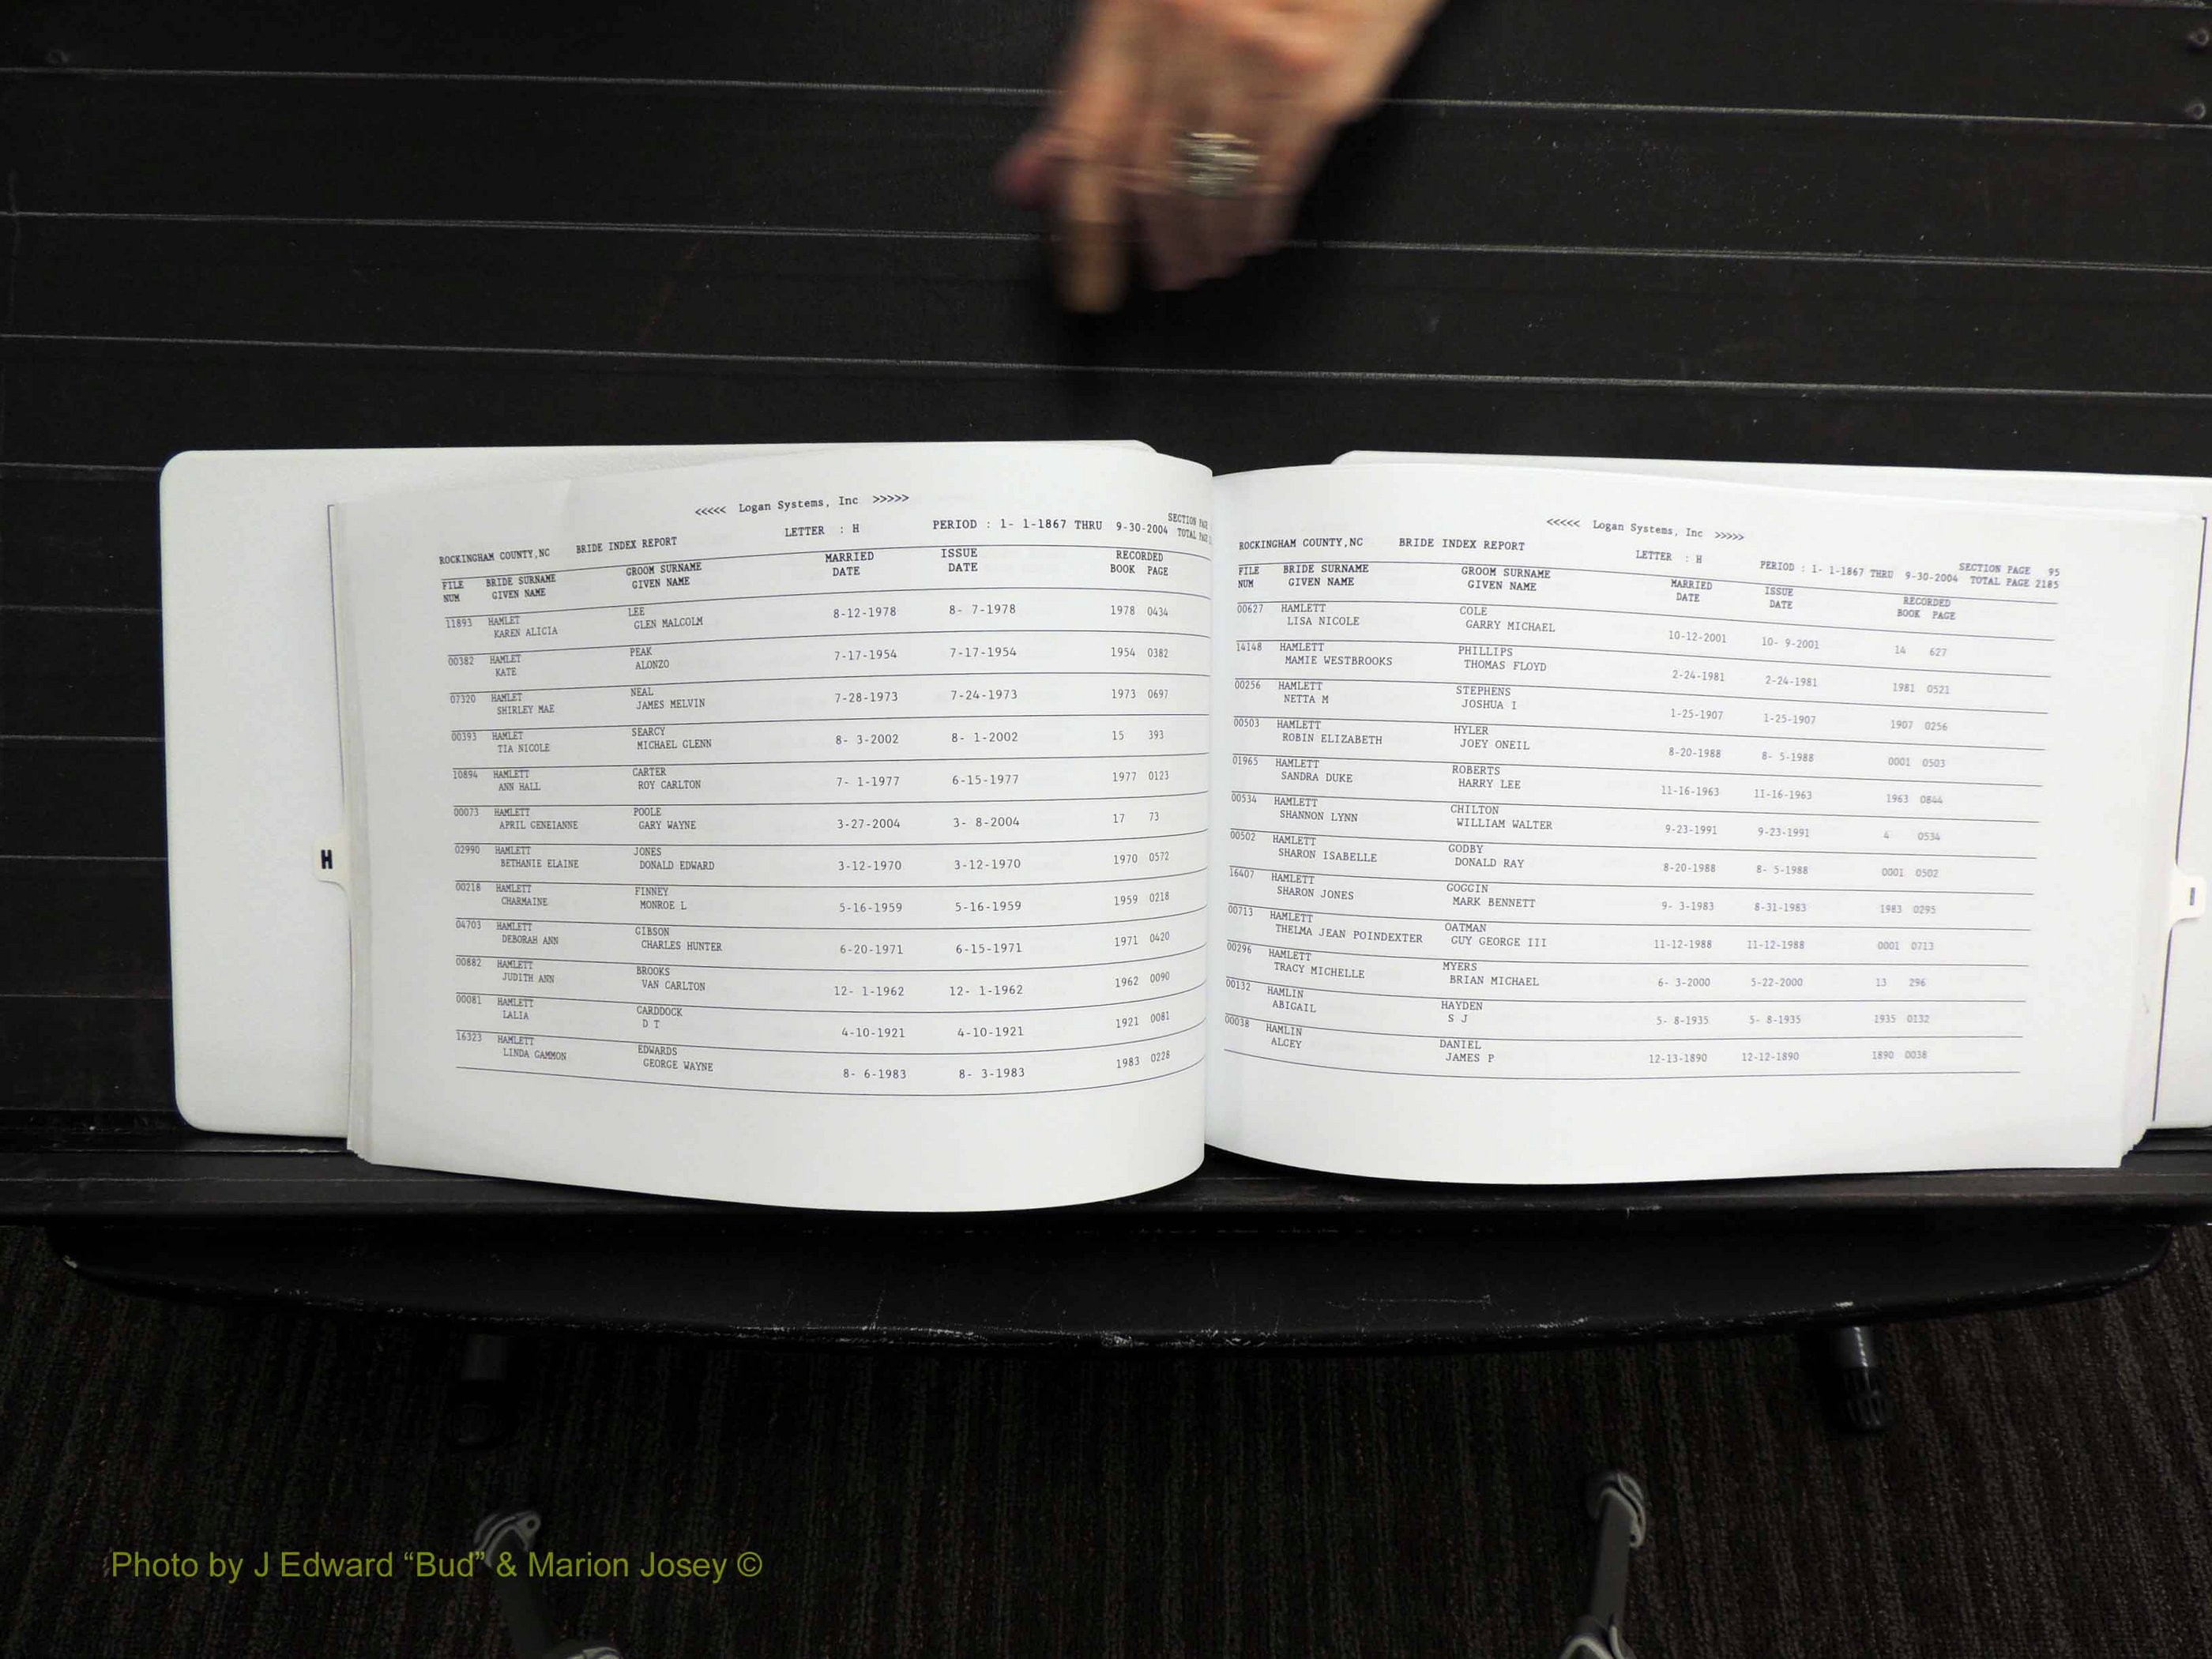 <<<<< Logan Systems, Inc >>>>>
SECTION PAGE
ROCKINGHAM COUNTY,NC BRIDE INDEX REPORT LETTER : H PERIOD : 1- 1-1867 THRU 9-30-2004 TOTAL PAGE
FILE BRIDE SURNAME GROOM SURNAME MARRIED ISSUE RECORDED
NUM GIVEN NAME GIVEN NAME DATE DATE BOOK PAGE
11893 HAMLET LEE 8-12-1978 8- 7-1978 1978 0434
KAREN ALICIA GLEN MALCOLM
00382 HAMLET PEAK 7-17-1954 7-17-1954 1954 0382
KATE ALONZO
07320 HAMLET NEAL 7-28-1973 7-24-1973 1973 0697
SHIRLEY MAE JAMES MELVIN
00393 HAMLET SEARCY 8- 3-2002 8- 1-2002 15 393
TIA NICOLE MICHAEL GLENN
10894 HAMLETT CARTER 7- 1-1977 6-15-1977 1977 0123
ANN HALL ROY CARLTON
00073 HAMLETT POOLE 3-27-2004 3- 8-2004 17 73
APRIL GENEIANNE GARY WAYNE
02990 HAMLETT JONES 3-12-1970 3-12-1970 1970 0572
BETHANIE ELAINE DONALD EDWARD
00218 HAMLETT FINNEY 5-16-1959 5-16-1959 1959 0218
CHARMAINE MONROE L
04703 HAMLETT GIBSON 6-20-1971 6-15-1971 1971 0420
DEBORAH ANN CHARLES HUNTER
00882 HAMLETT BROOKS 12- 1-1962 12- 1-1962 1962 0090
JUDITH ANN VAN CARLTON
00081 HAMLETT CARDDOCK 4-10-1921 4-10-1921 1921 0081
LALIA D T
16323 HAMLETT EDWARDS 8- 6-1983 8- 3-1983 1983 0228
LINDA GAMMON GEORGE WAYNE
H
<<<<< Logan Systems, Inc >>>>>
SECTION PAGE 95
ROCKINGHAM COUNTY,NC BRIDE INDEX REPORT LETTER : H PERIOD : 1- 1-1867 THRU 9-30-2004 TOTAL PAGE 2185
FILE BRIDE SURNAME GROOM SURNAME MARRIED ISSUE RECORDED
NUM GIVEN NAME GIVEN NAME DATE DATE BOOK PAGE
00627 HAMLETT COLE 10-12-2001 10- 9-2001 14 627
LISA NICOLE GARRY MICHAEL
14148 HAMLETT PHILLIPS 2-24-1981 2-24-1981 1981 0521
MAMIE WESTBROOKS THOMAS FLOYD
00256 HAMLETT STEPHENS 1-25-1907 1-25-1907 1907 0256
NETTA M JOSHUA I
00503 HAMLETT HYLER 8-20-1988 8- 5-1988 0001 0503
ROBIN ELIZABETH JOEY ONEIL
01965 HAMLETT ROBERTS 11-16-1963 11-16-1963 1963 0844
SANDRA DUKE HARRY LEE
00534 HAMLETT CHILTON 9-23-1991 9-23-1991 4 0534
SHANNON LYNN WILLIAM WALTER
00502 HAMLETT GODBY 8-20-1988 8- 5-1988 0001 0502
SHARON ISABELLE DONALD RAY
16407 HAMLETT GOGGIN 9- 3-1983 8-31-1983 1983 0295
SHARON JONES MARK BENNETT
00713 HAMLETT OATMAN 11-12-1988 11-12-1988 0001 0713
THELMA JEAN POINDEXTER GUY GEORGE III
00296 HAMLETT MYERS 6- 3-2000 5-22-2000 13 296
TRACY MICHELLE BRIAN MICHAEL
00132 HAMLIN HAYDEN 5- 8-1935 5- 8-1935 1935 0132
ABIGAIL S J
00038 HAMLIN DANIEL 12-13-1890 12-12-1890 1890 0038
ALCEY JAMES P
I
Photo by J Edward “Bud” & Marion Josey ©